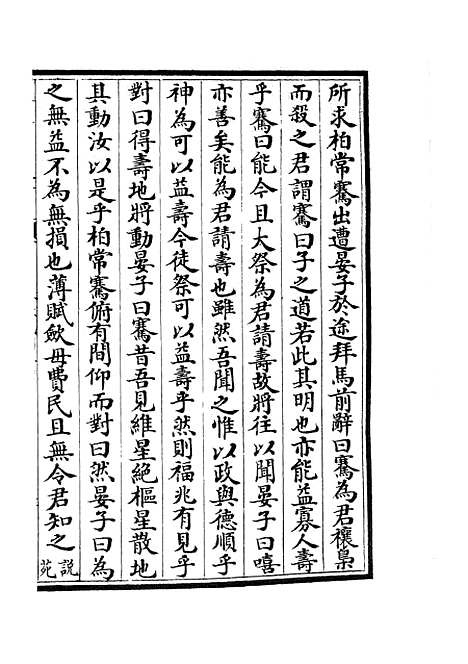 所求柏常騫出遭晏子於途拜馬前辭曰騫為君禳梟
而殺之君謂騫曰子之道若此其明也亦能益寡人壽
乎騫曰能今且大祭為君請壽故將往以聞晏子曰嘻
亦善矣能為君請壽也雖然吾聞之惟以政與德順乎
神為可以益壽今徒祭可以益壽乎然則福兆有見乎
對曰得壽地將動晏子曰騫昔吾見維星絶樞星散地
其動汝以是乎柏常騫俯有間仰而對曰然晏子曰為
之無益不為無損也薄賦斂毋費民且無令君知之說苑